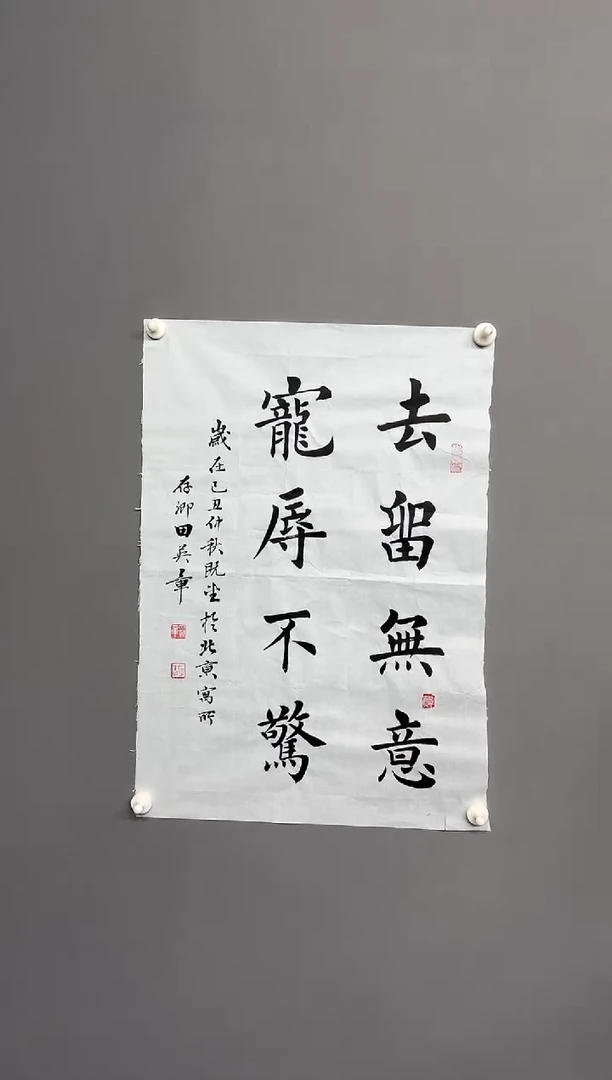 去留無意
寵辱不驚
歲在己丑仲秋既望於北京寓所
存卿田英章